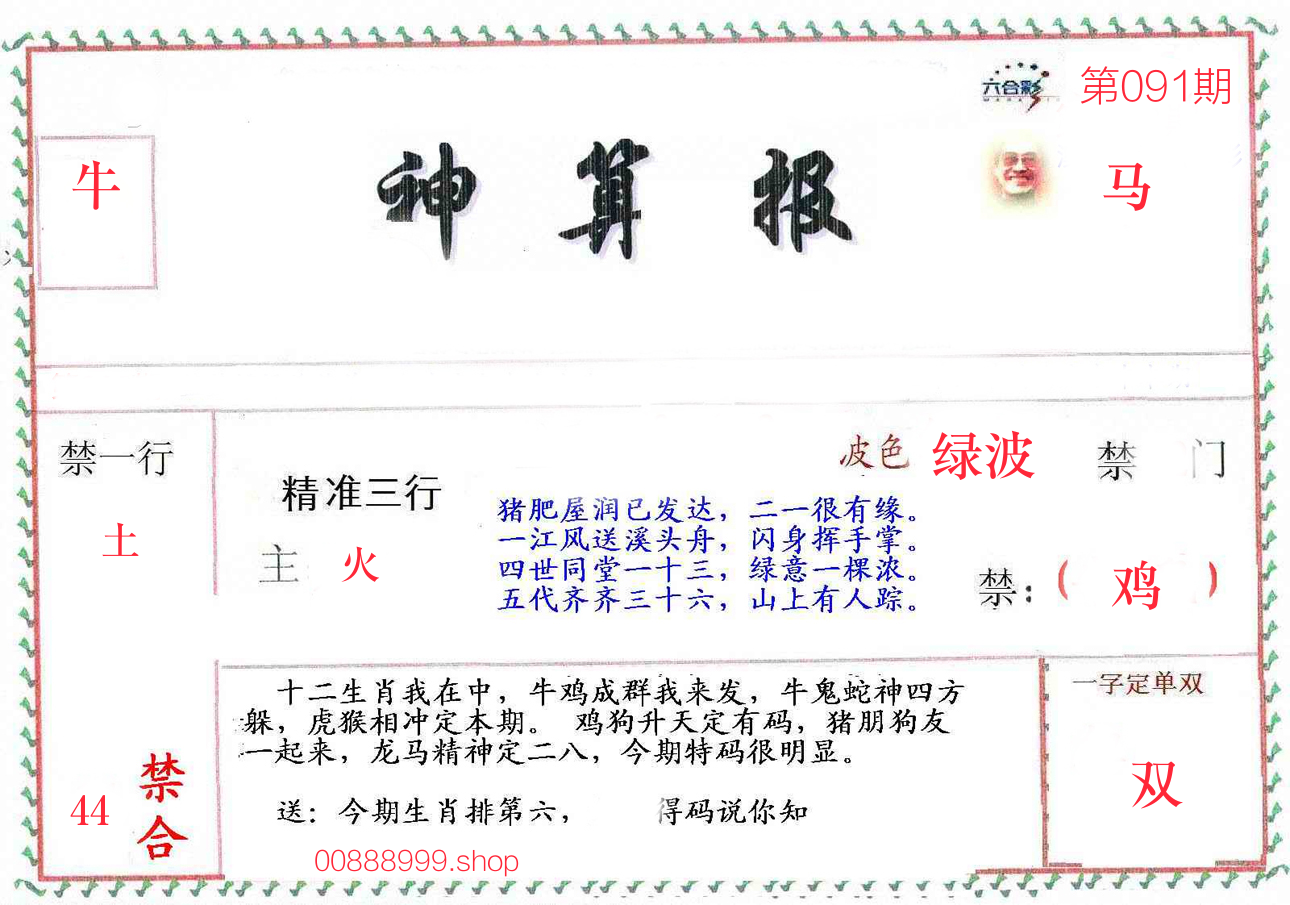 六合彩
第091期
牛
神算报
马
禁一行
土
精准三行
主 火
皮色 绿波
禁 门
猪肥屋润已发达，二一很有缘。
一江风送溪头舟，闪身挥手掌。
四世同堂一十三，绿意一棵浓。
五代齐齐三十六，山上有人踪。
禁：（ 鸡 ）
十二生肖我在中，牛鸡成群我来发，牛鬼蛇神四方
躲，虎猴相冲定本期。 鸡狗升天定有码，猪朋狗友
一起来，龙马精神定二八，今期特码很明显。
送：今期生肖排第六， 得码说你知
00888999.shop
44
禁合
一字定单双
双